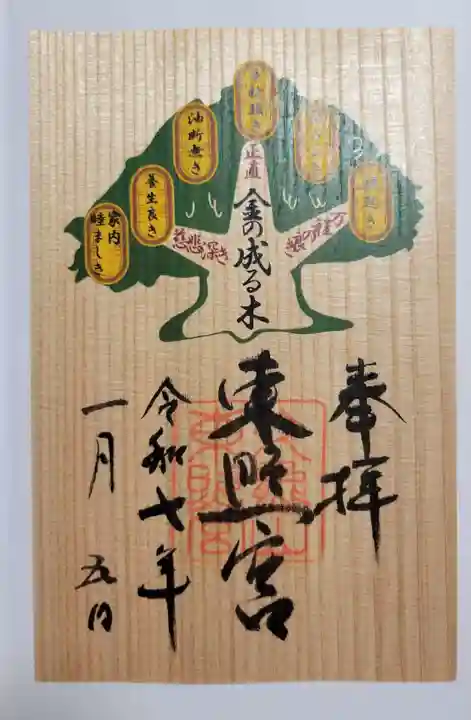 油断無き
養生良き
家内
睦ましき
正直
慈悲深き
金の成る木
奉拝
東照宮
令和七年
一月
五日